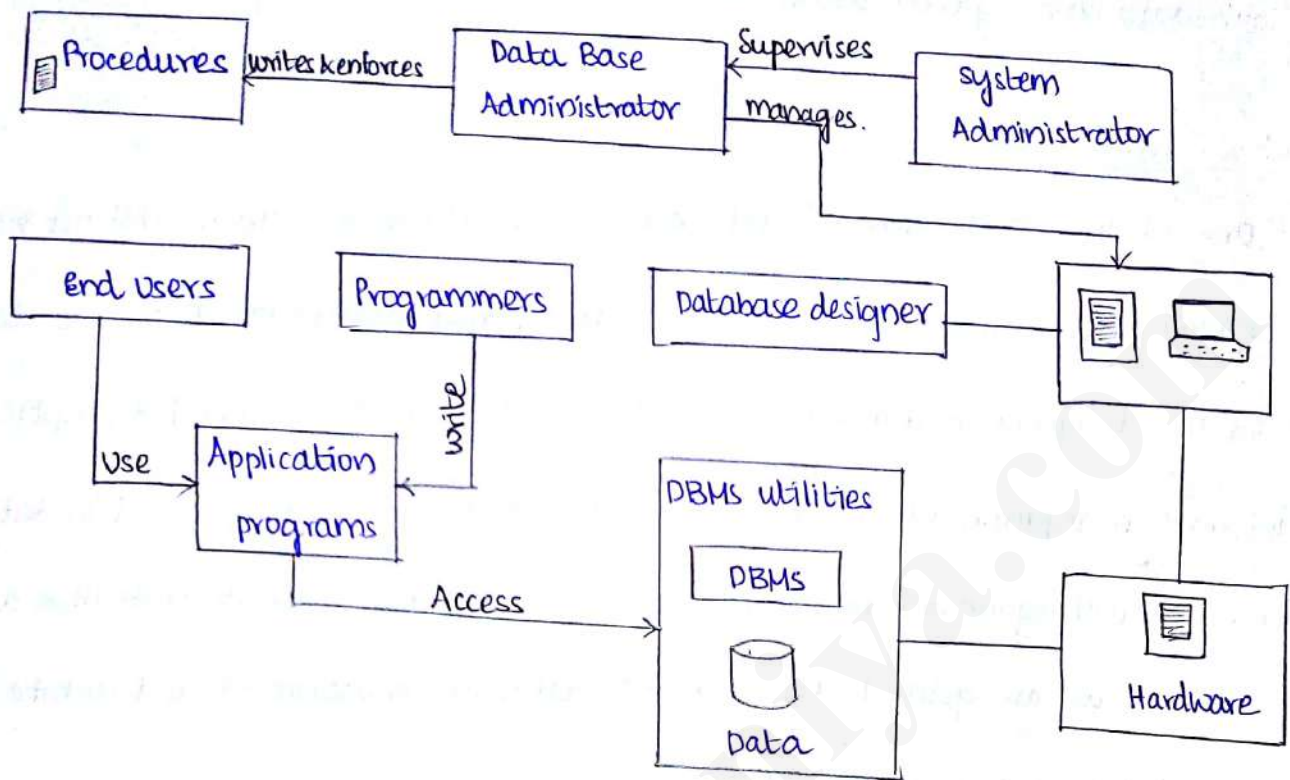 Procedures
writes & enforces
Data Base
Administrator
Supervises
manages.
system
Administrator
End users
Programmers
Database designer
use
write
Application
programs
Access
DBMS utilities
DBMS
Data
Hardware